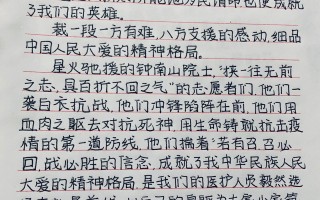 为民请命也便成就
了我们的英雄。
裁一段一方有难,八方支援的感动,细品
中国人民大爱的精神格局。
星火驰援的钟南山院士,“挟一往无前
之志,具百折不回之气”的志愿者们,他们一
袭白衣抗战,他们冲锋陷阵在前,他们用
血肉之躯去对抗死神,用生命铸就抗击疫
情的第一道防线,他们揣着“若有召召必
回,战必胜的信念,成就了我中华民族人民
大爱的精神格局,是我们的医护人员毅然选